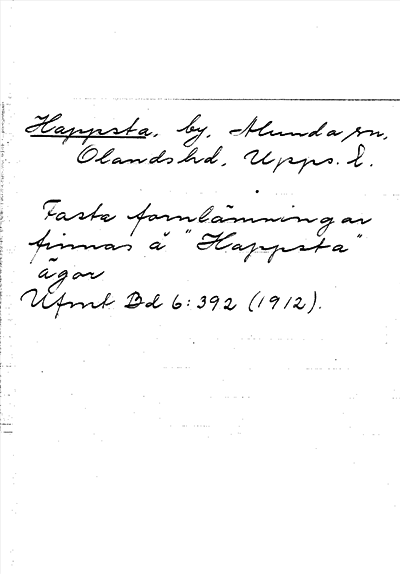 Happsta, by, Alunda sn,
Olandshd, Upps. l.
Fasta fornlämningar
finnas å "Happsta"
ägor
Ufmt Bd 6:392 (1912).